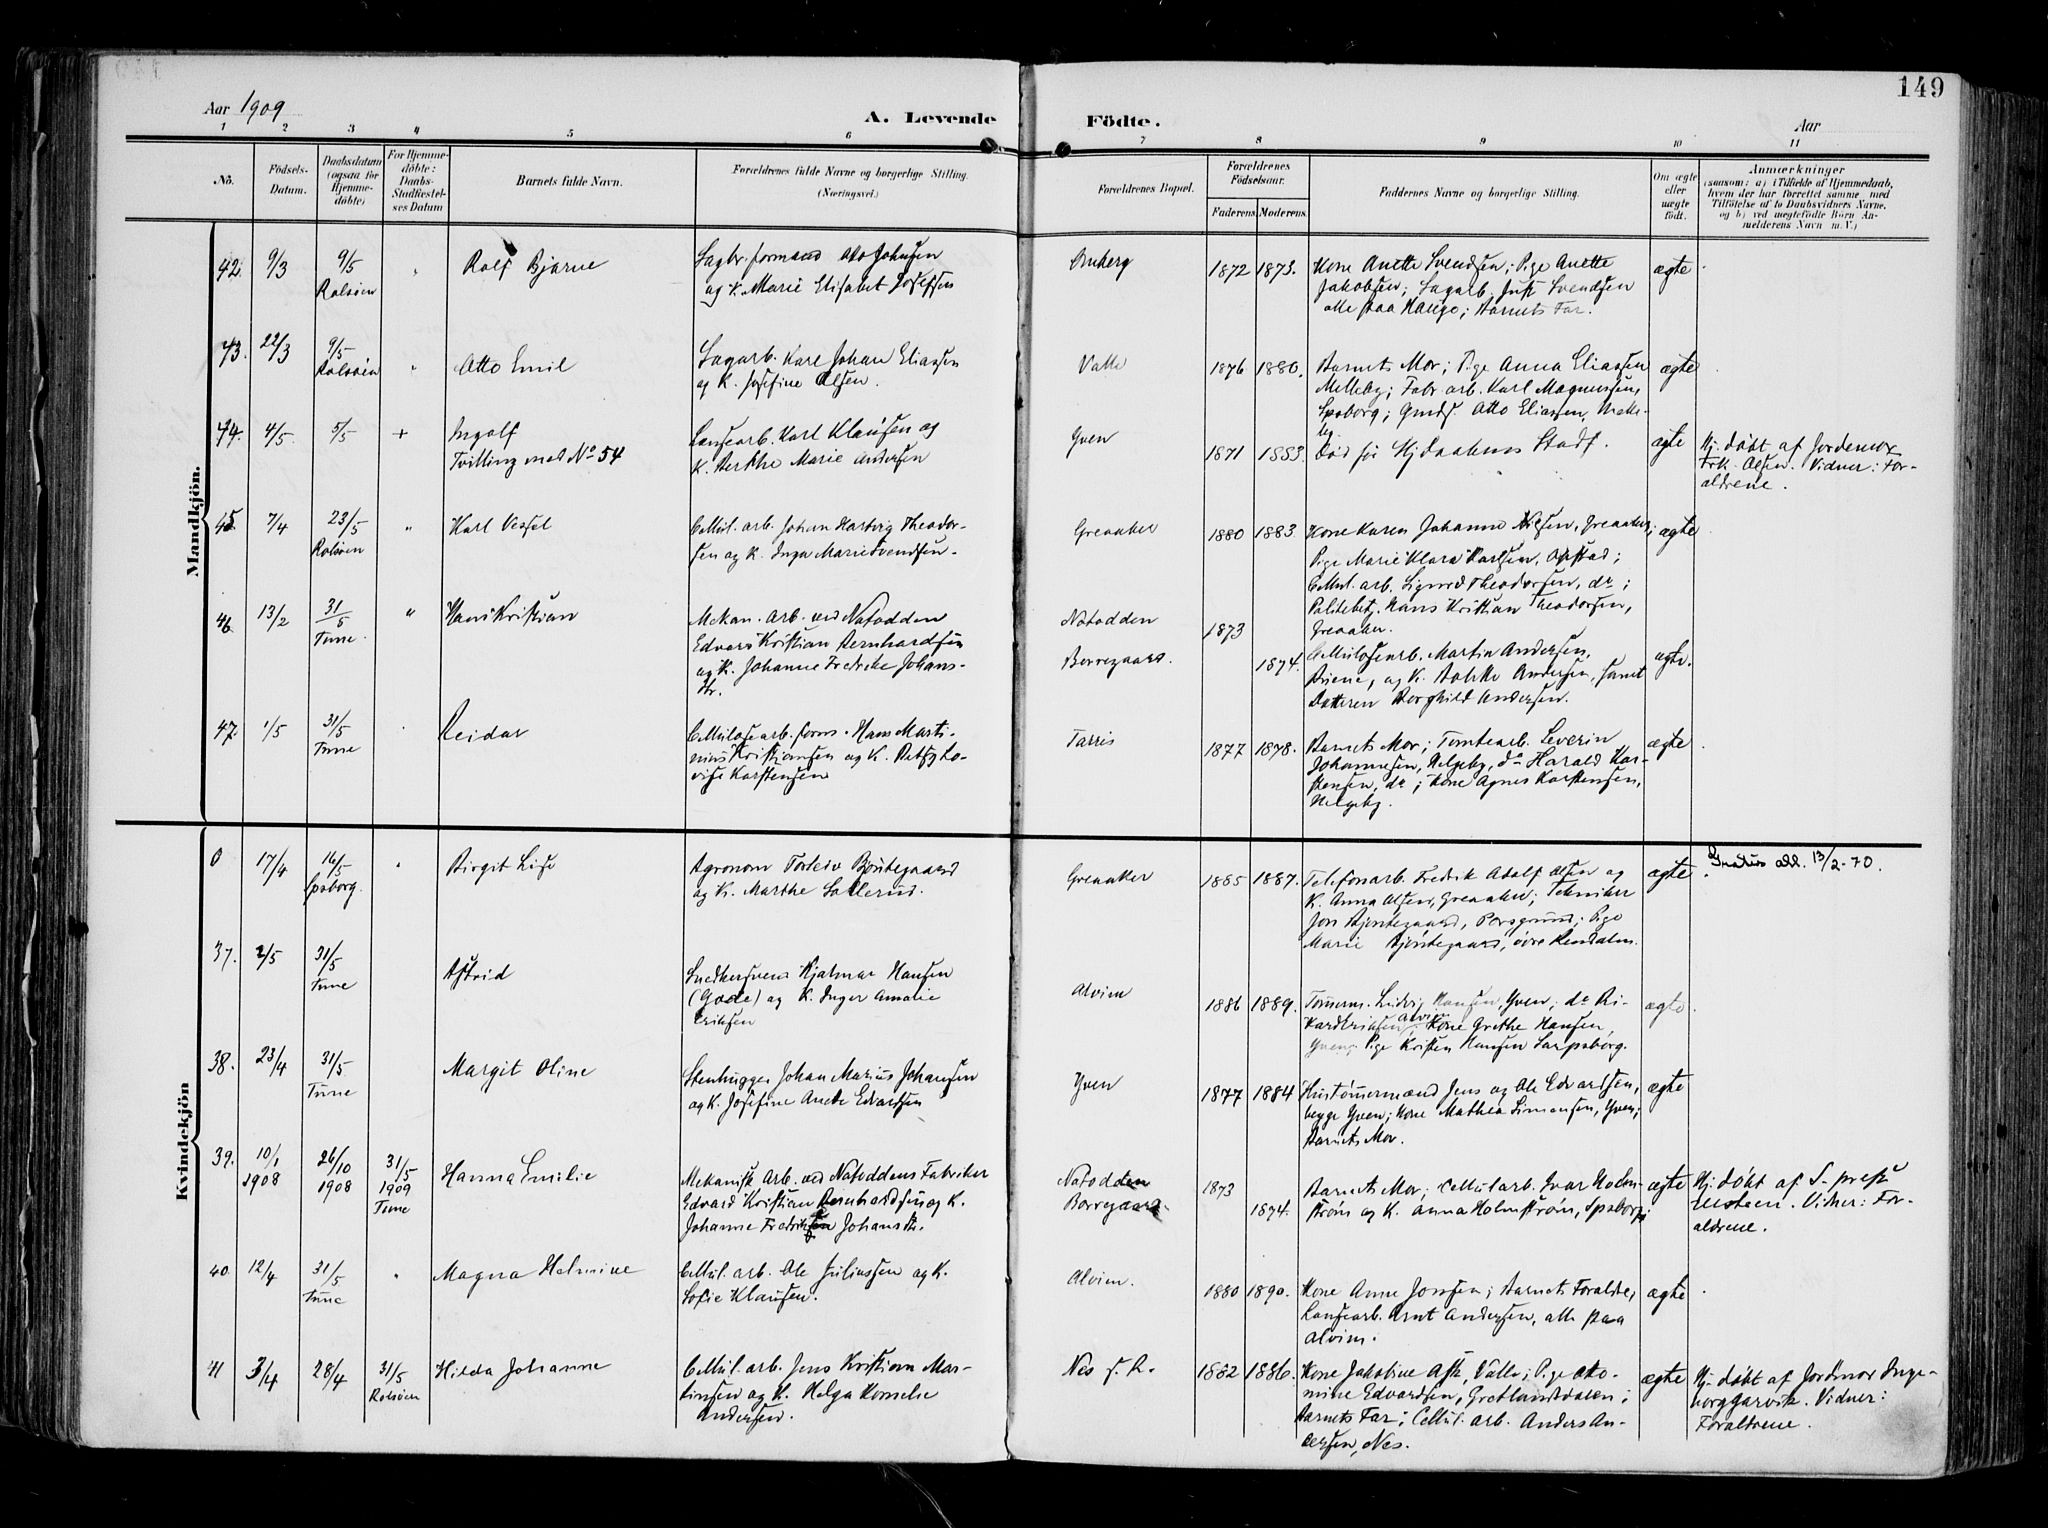 149
Aar 1909
A. Levende Födte.
Aar
1 2 3 4 5 6 7 8 9 10 11
No.
Födsels-Datum.
Daabsdatum (ogsaa for Hjemmedöbte)
For Hjemmedöbte: Daabs-Stadfæstelses Datum
Barnets fulde Navn.
Forældrenes fulde Navne og borgerlige Stilling.
(Næringsvei.)
Forældrenes Bopæl.
Forældrenes Födselsaar.
Faderens. Moderens.
Faddernes Navne og borgerlige Stilling.
Om ægte eller uægte födt.
Anmærkninger
(saasom: a) i Tilfælde af Hjemmedaab, hvem der har forrettet samme med Tilföielse af to Daabsvidners Navne, og b) ved uægtefödte Börn Anmelderens Navn m. V.)
Mandkjön.
42. 9/3 9/5 Rolsøen " Rolf Bjarne
Sagbr. formand Olo Johnsen
og K. Marie Elisabet Josefsen
1872 1873.
Kone Anette Svendsen; Pige Anette
Jakobsen; Sagarb. Just Svendsen
alle paa Hauge; Barnets Far.
ægte
43. 22/3 9/5 Rolsøen " Otto Emil
Sagarb. Karl Johan Eliassen
og K. Josefine Olsen.
Valle
1876 1880.
Barnets Mor; Pige Anna Eliassen
Melleby; Fabr arb. Karl Magnussen,
Spsborg; Gmds. Otto Eliassen, Melleby
ægte
44. 4/5 5/5 + Ingolf
Tvilling med No 54
Lansearb. Karl Klausen og
K. Berthe Marie Andersen
Yven
1871 1883.
Død før Hj daabens Stadf.
ægte
Hj. døbt af Jordemor
Frk. Olsen. Vidner: Forældrene.
45. 7/4 23/5 Rolsøen " Karl Vessel
Cellul. arb. Johan Hartvig Theodorsen og K. Inga Marie Svendsen.
Greaaker
1880 1883
Kone Karen Johanne Nilsen, Greaaker;
Pige Marie Klara Karlsen, Opstad;
Cellul. arb. Sigurd Theodorsen, do;
Politibetj. Hans Kristian Theodorsen,
Greaaker.
ægte
46. 13/2 31/5 Tune. " Hans Kristian
Mekan. Arb. ved Notodden
Edvard Kristian Bernhardsen
og K. Johanne Fredrike Johansdtr.
Notodden
Borregaard.
1873
1874.
Cellulosearb. Martin Andersen,
og K. Bolette Andersen, samt
Datteren Borghild Andersen.
ægte.
47. 1/5 31/5 Tune Reidar
Cellulosearb. form. Hans Martinius Kristiansen og K. Betzy Lovise Karstensen
Tarris
1877 1878.
Barnets Mor; Tomtearb. Severin
Johannesen, Helgeby, do Harald Karstensen, do; Kone Agnes Karstensen,
Helgeby.
ægte
Kvindekjön
0 17/4 16/5 Spsborg. " Birgit Lise
Agronom Torleiv Bjøntegaard
og K. Marthe Sollerud.
Greaaker
1885 1887.
Telefonarb Fredrik Adolf Olsen og
K. Anna Olsen, Greaaker; Tekniker
Jon Bjøntegaard, Porsgrund; Pige
Marie Bjøntegaard, øvre Rendalen.
ægte
Gratis att. 13/2-70.
37. 2/5 31/5 Tune Astrid
Snedkersvend Hjalmar Hansen
(Gode) og K. Inger Amalie
Eriksen
Alvim
1886 1889.
Tømerm. Ludvig Hansen, Yven; do Rikard Eriksen Alvim; Kone Grethe Hansen,
Yven; Pige Kristen Hansen Sarpsborg.
ægte
38. 23/4 31/5 Tune Margit Oline
Stenhugger Johan Marius Johansen
og K. Josefine Anette Edvardsen
Yven
1877 1884
Hustømermænd Jens og Ole Edvardsen,
begge Yven; Kone Mathea Simensen, Yven;
Barnets Mor.
ægte
39. 10/1 1908 26/10 1908 31/5 1909 Tune Hanna Emilie
Mekanisk Arb. ved Notoddens Fabriker
Edvard Kristian Bernhardsen og K.
Johanne Fredriksen Johansdtr.
Notodden
Borregaard.
1873
1874.
Barnets Mor; Cellul arb. Ivar Holmstrøm og K. Anna Holmstrøm, Spsborg;
ægte
Hj. døbt af S. prest
Vidner: Forældrene.
40. 12/4 31/5 Tune " Magna Helmine
Cellul. arb. Ole Juliussen og K.
Sofie Klausen.
Alvim.
1880 1890.
Kone Anne Jonssen; Barnets Forældre,
Lansearb. Arnt Andersen, alle paa
Alvim.
ægte
41 3/4 28/4 31/5 Rolsøen Hilda Johanne
Cellul. arb. Jens Kristian Martinsen og K. Helga Kornelie
Andersen.
Nes f. R.
1882 1886.
Kone Jakobine Ask, Valle; Pige Ottomine Edvardsen, Gretlandsdalen;
Barnets Far; Cellul. arb. Anders Andersen, Nes.
ægte
Hj. døbt af Jordmor Ingeborg Garvik. Vidner:
Forældrene